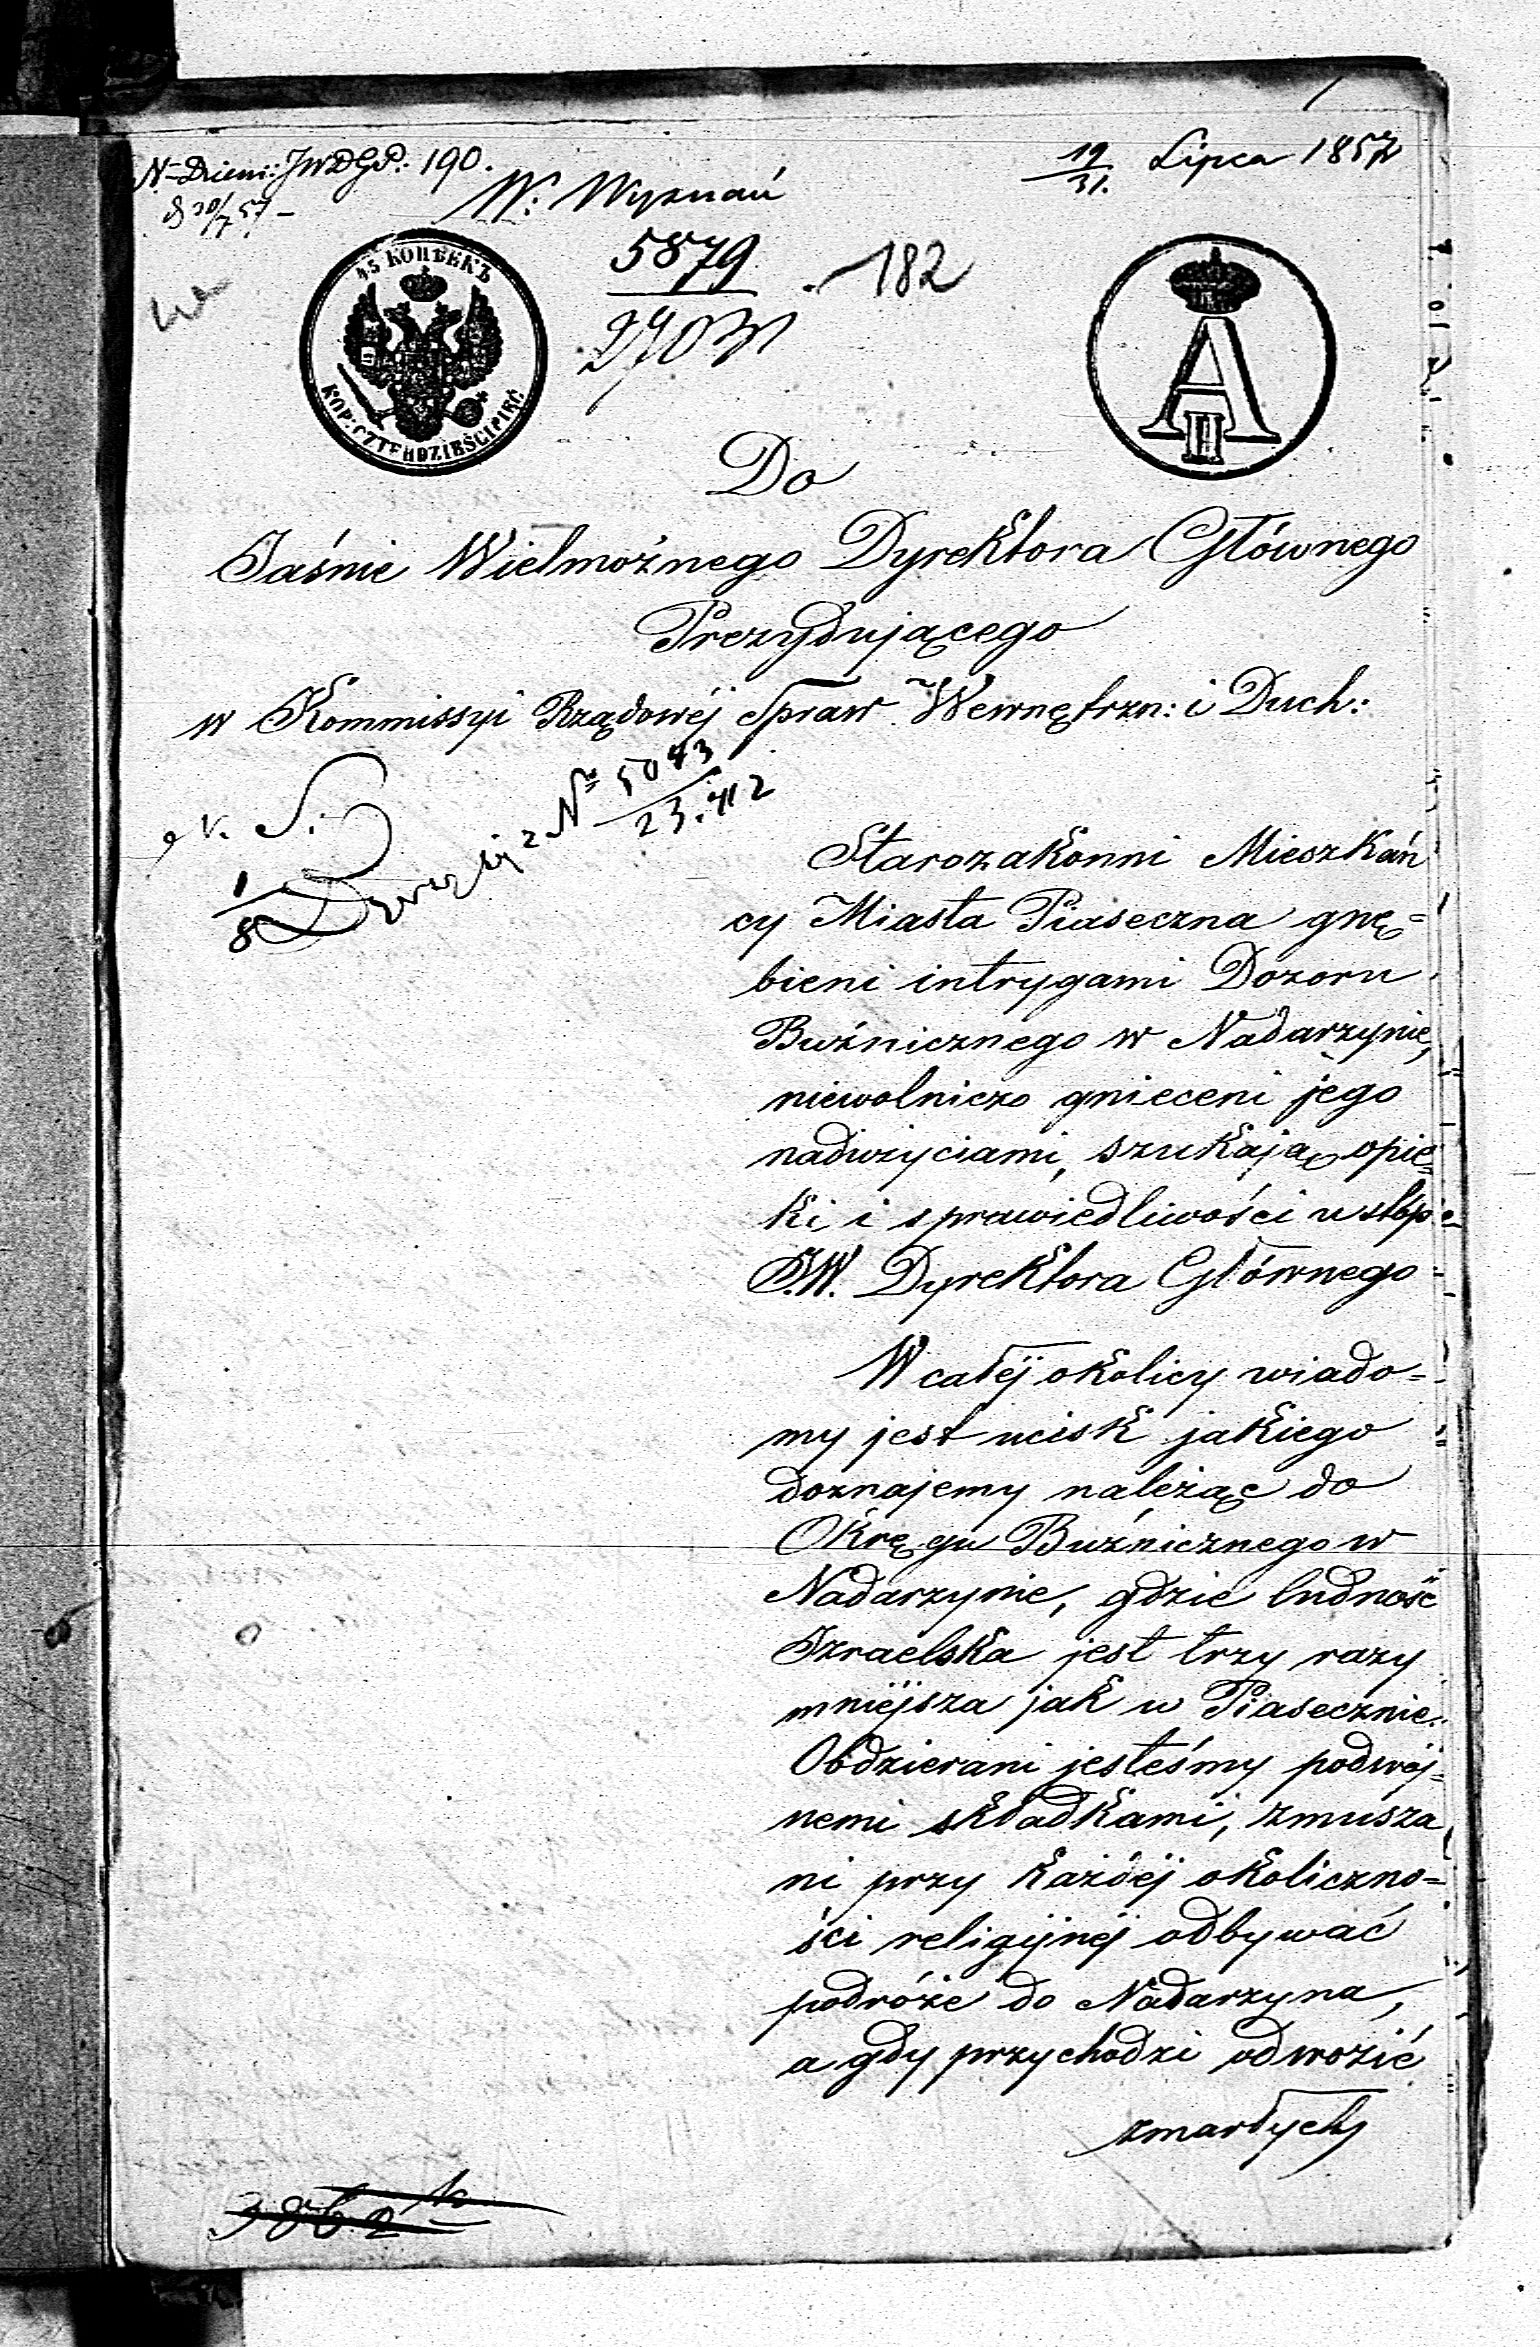 N– Dzien: JWDGP: 190.
19/31. Lipca 1857
d 30/7 57 –
W: Wyznań
5879
182
45 КОПѢЕКЪ
KOP: CZTERDZIEŚCI PIĘĆ
A II
Do
Jaśnie Wielmożnego Dyrektora Głównego
Prezydującego
w Kommissyi Rządowéj Spraw Wewnętrzn: i Duch:
N= 5043
23.412
1/8
Starozakonni Mieszkań
cy Miasta Piaseczna gnę=
bieni intrygami Dozoru
Buźnicznego w Nadarzynie,
niewolniczo gnieceni jego
nadużyciami, szukają opie=
ki i sprawiedliwości u stóp
J.W. Dyrektora Głównego
W całéj okolicy wiado=
my jest ucisk jakiego
doznajemy należąc do
Okręgu Buźnicznego w
Nadarzynie, gdzie ludność
Izraelska jest trzy razy
mniéjsza jak w Piasecznie.
Obdzierani jesteśmy podwój=
nemi składkami, zmusza
ni przy każdéj okoliczno=
ści religijnéj odbywać
podróże do Nadarzyna,
a gdy przychodzi odwozić
zmarłych
3862